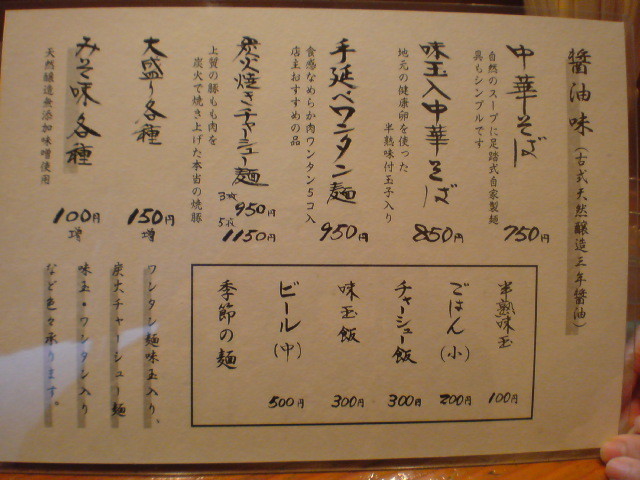 醤油味（古式天然醸造三年醤油）
中華そば
自然のスープに足踏式自家製麺
具もシンプルです
750円
味玉入中華そば
地元の健康卵を使った
半熟味付玉子入り
850円
手延べワンタン麺
食感なめらか肉ワンタン5コ入
店主おすすめの品
950円
炭火焼きチャーシュー麺
上質の豚もも肉を
炭火で焼き上げた本当の焼豚
3枚 950円
5枚 1150円
大盛り各種
150円増
みそ味各種
天然醸造無添加味噌使用
100円増
半熟味玉
100円
ごはん（小）
200円
チャーシュー飯
300円
味玉飯
300円
ビール（中）
500円
季節の麺
ワンタン麺味玉入り。
炭火チャーシュー麺
味玉・ワンタン入り
など色々承ります。